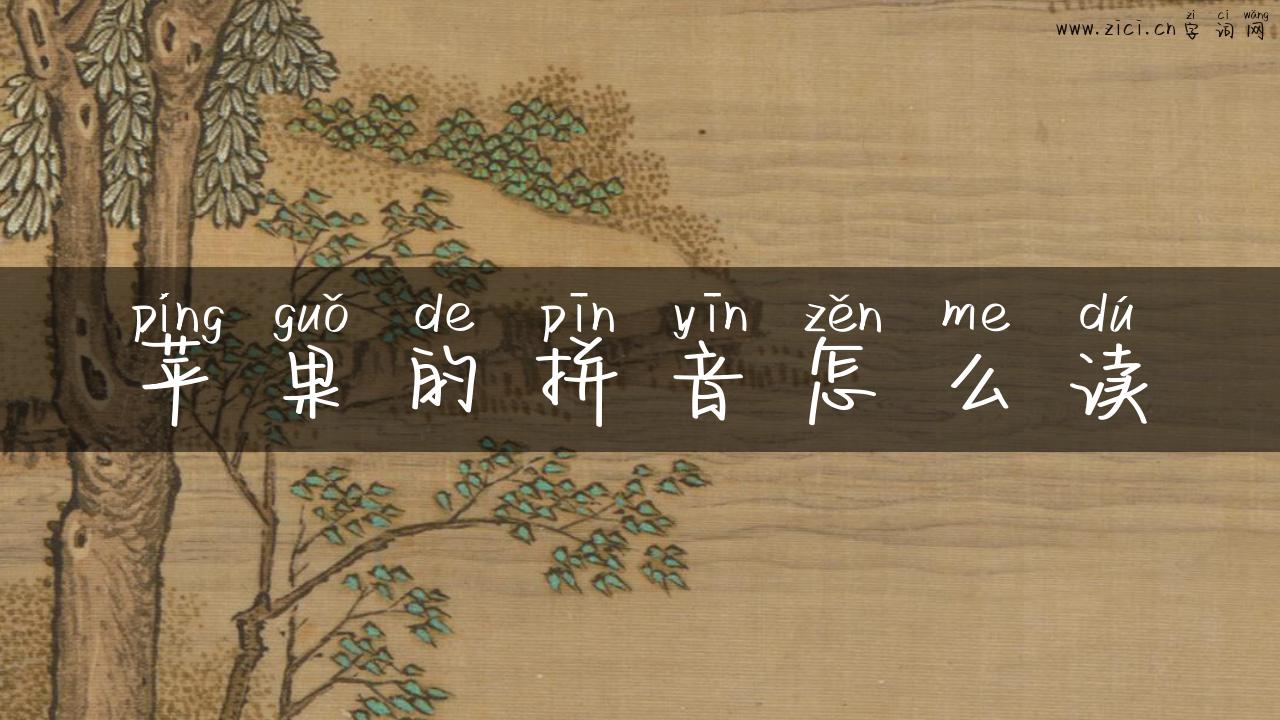 zì cí wǎng
www.zici.cn 字词网
píng guǒ de pīn yīn zěn me dú
苹果的拼音怎么读